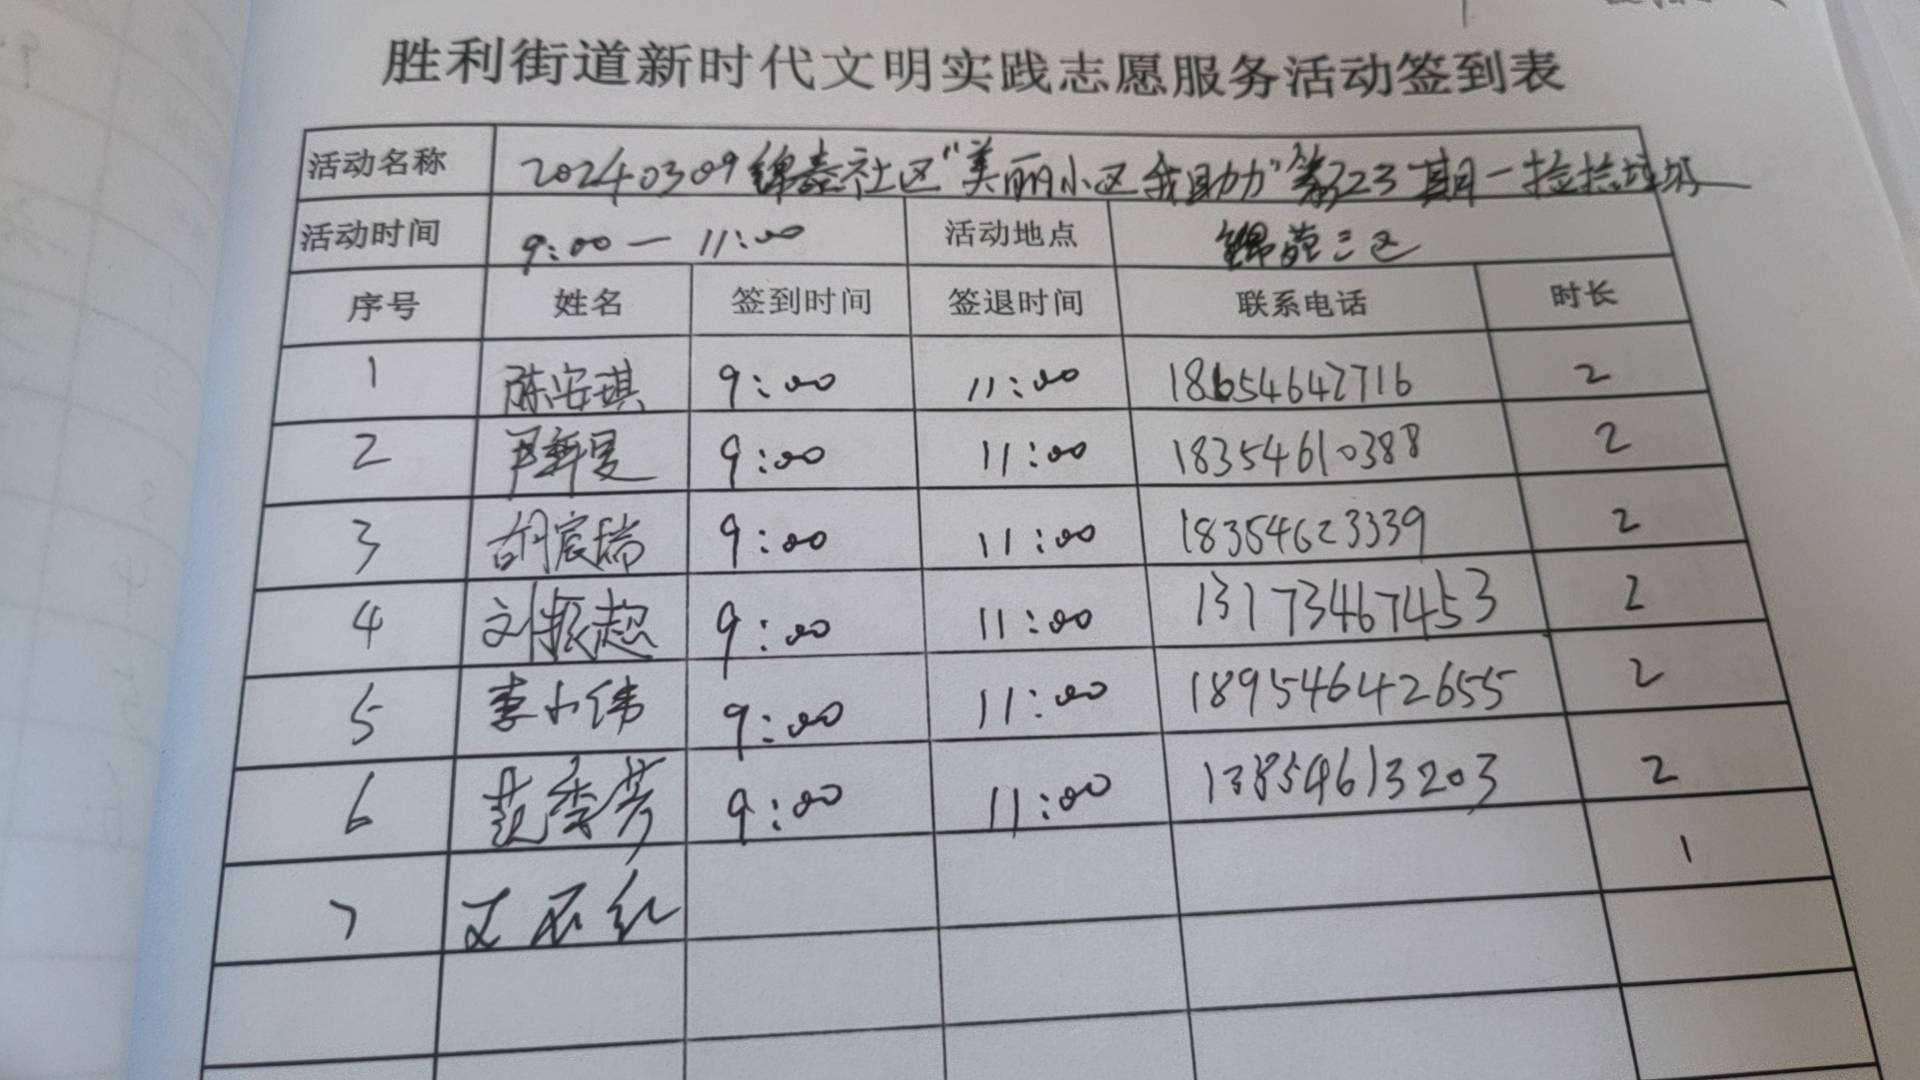 胜利街道新时代文明实践志愿服务活动签到表
活动名称 20240309锦泰社区“美丽小区我助力”第23期—捡拾垃圾
活动时间 9:00—11:00 活动地点 锦苑三区
序号 姓名 签到时间 签退时间 联系电话 时长
1 陈安琪 9:00 11:00 18654642716 2
2 9:00 11:00 18354610388 2
3 胡宸瑞 9:00 11:00 18354623339 2
4 刘振超 9:00 11:00 13173467453 2
5 李小伟 9:00 11:00 18954642655 2
6 范秀芳 9:00 11:00 13854613203 2
7 1